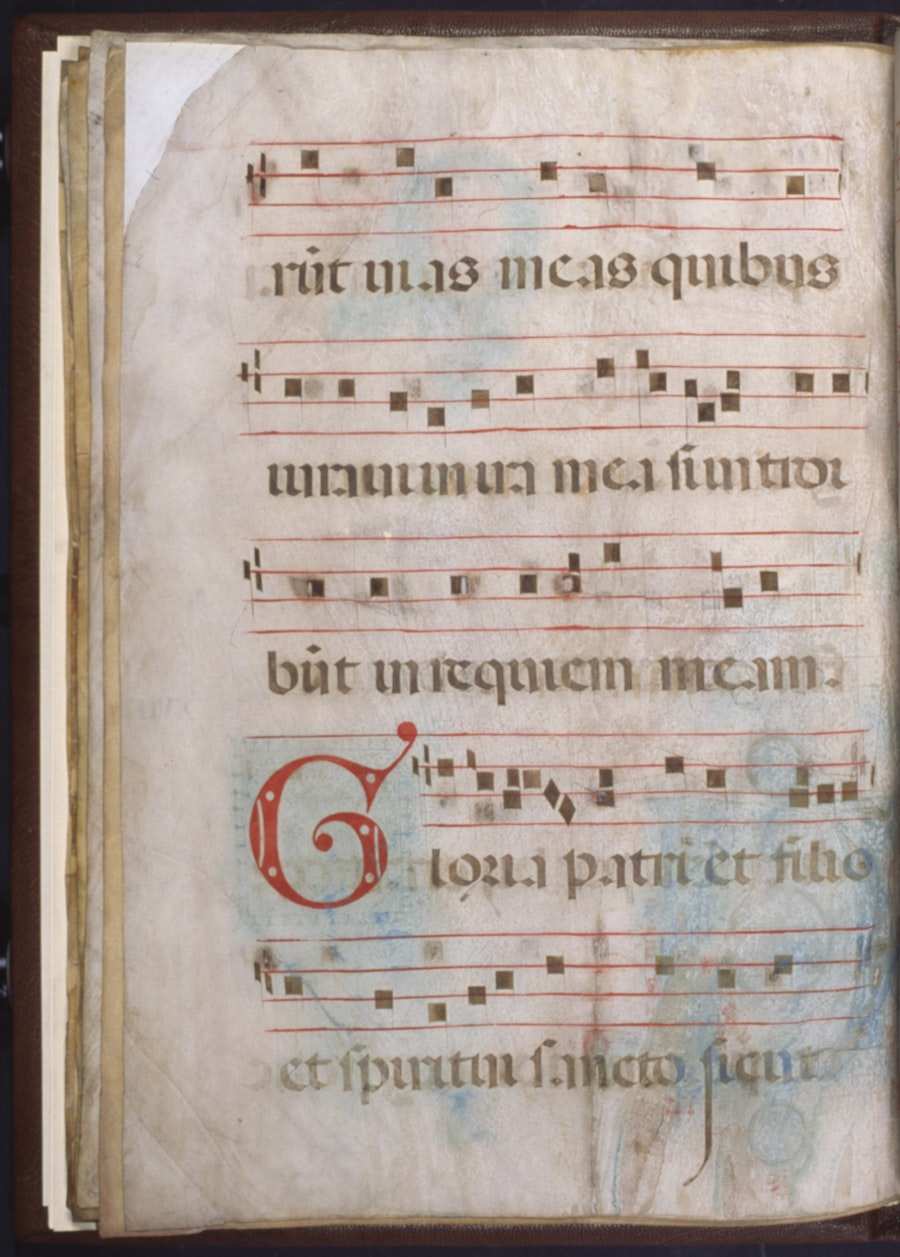 rūt uias meas quibus
iuraui in ira mea si introi
būt in requiem meam.
Gloria patri et filio
et spiritui sancto sicut